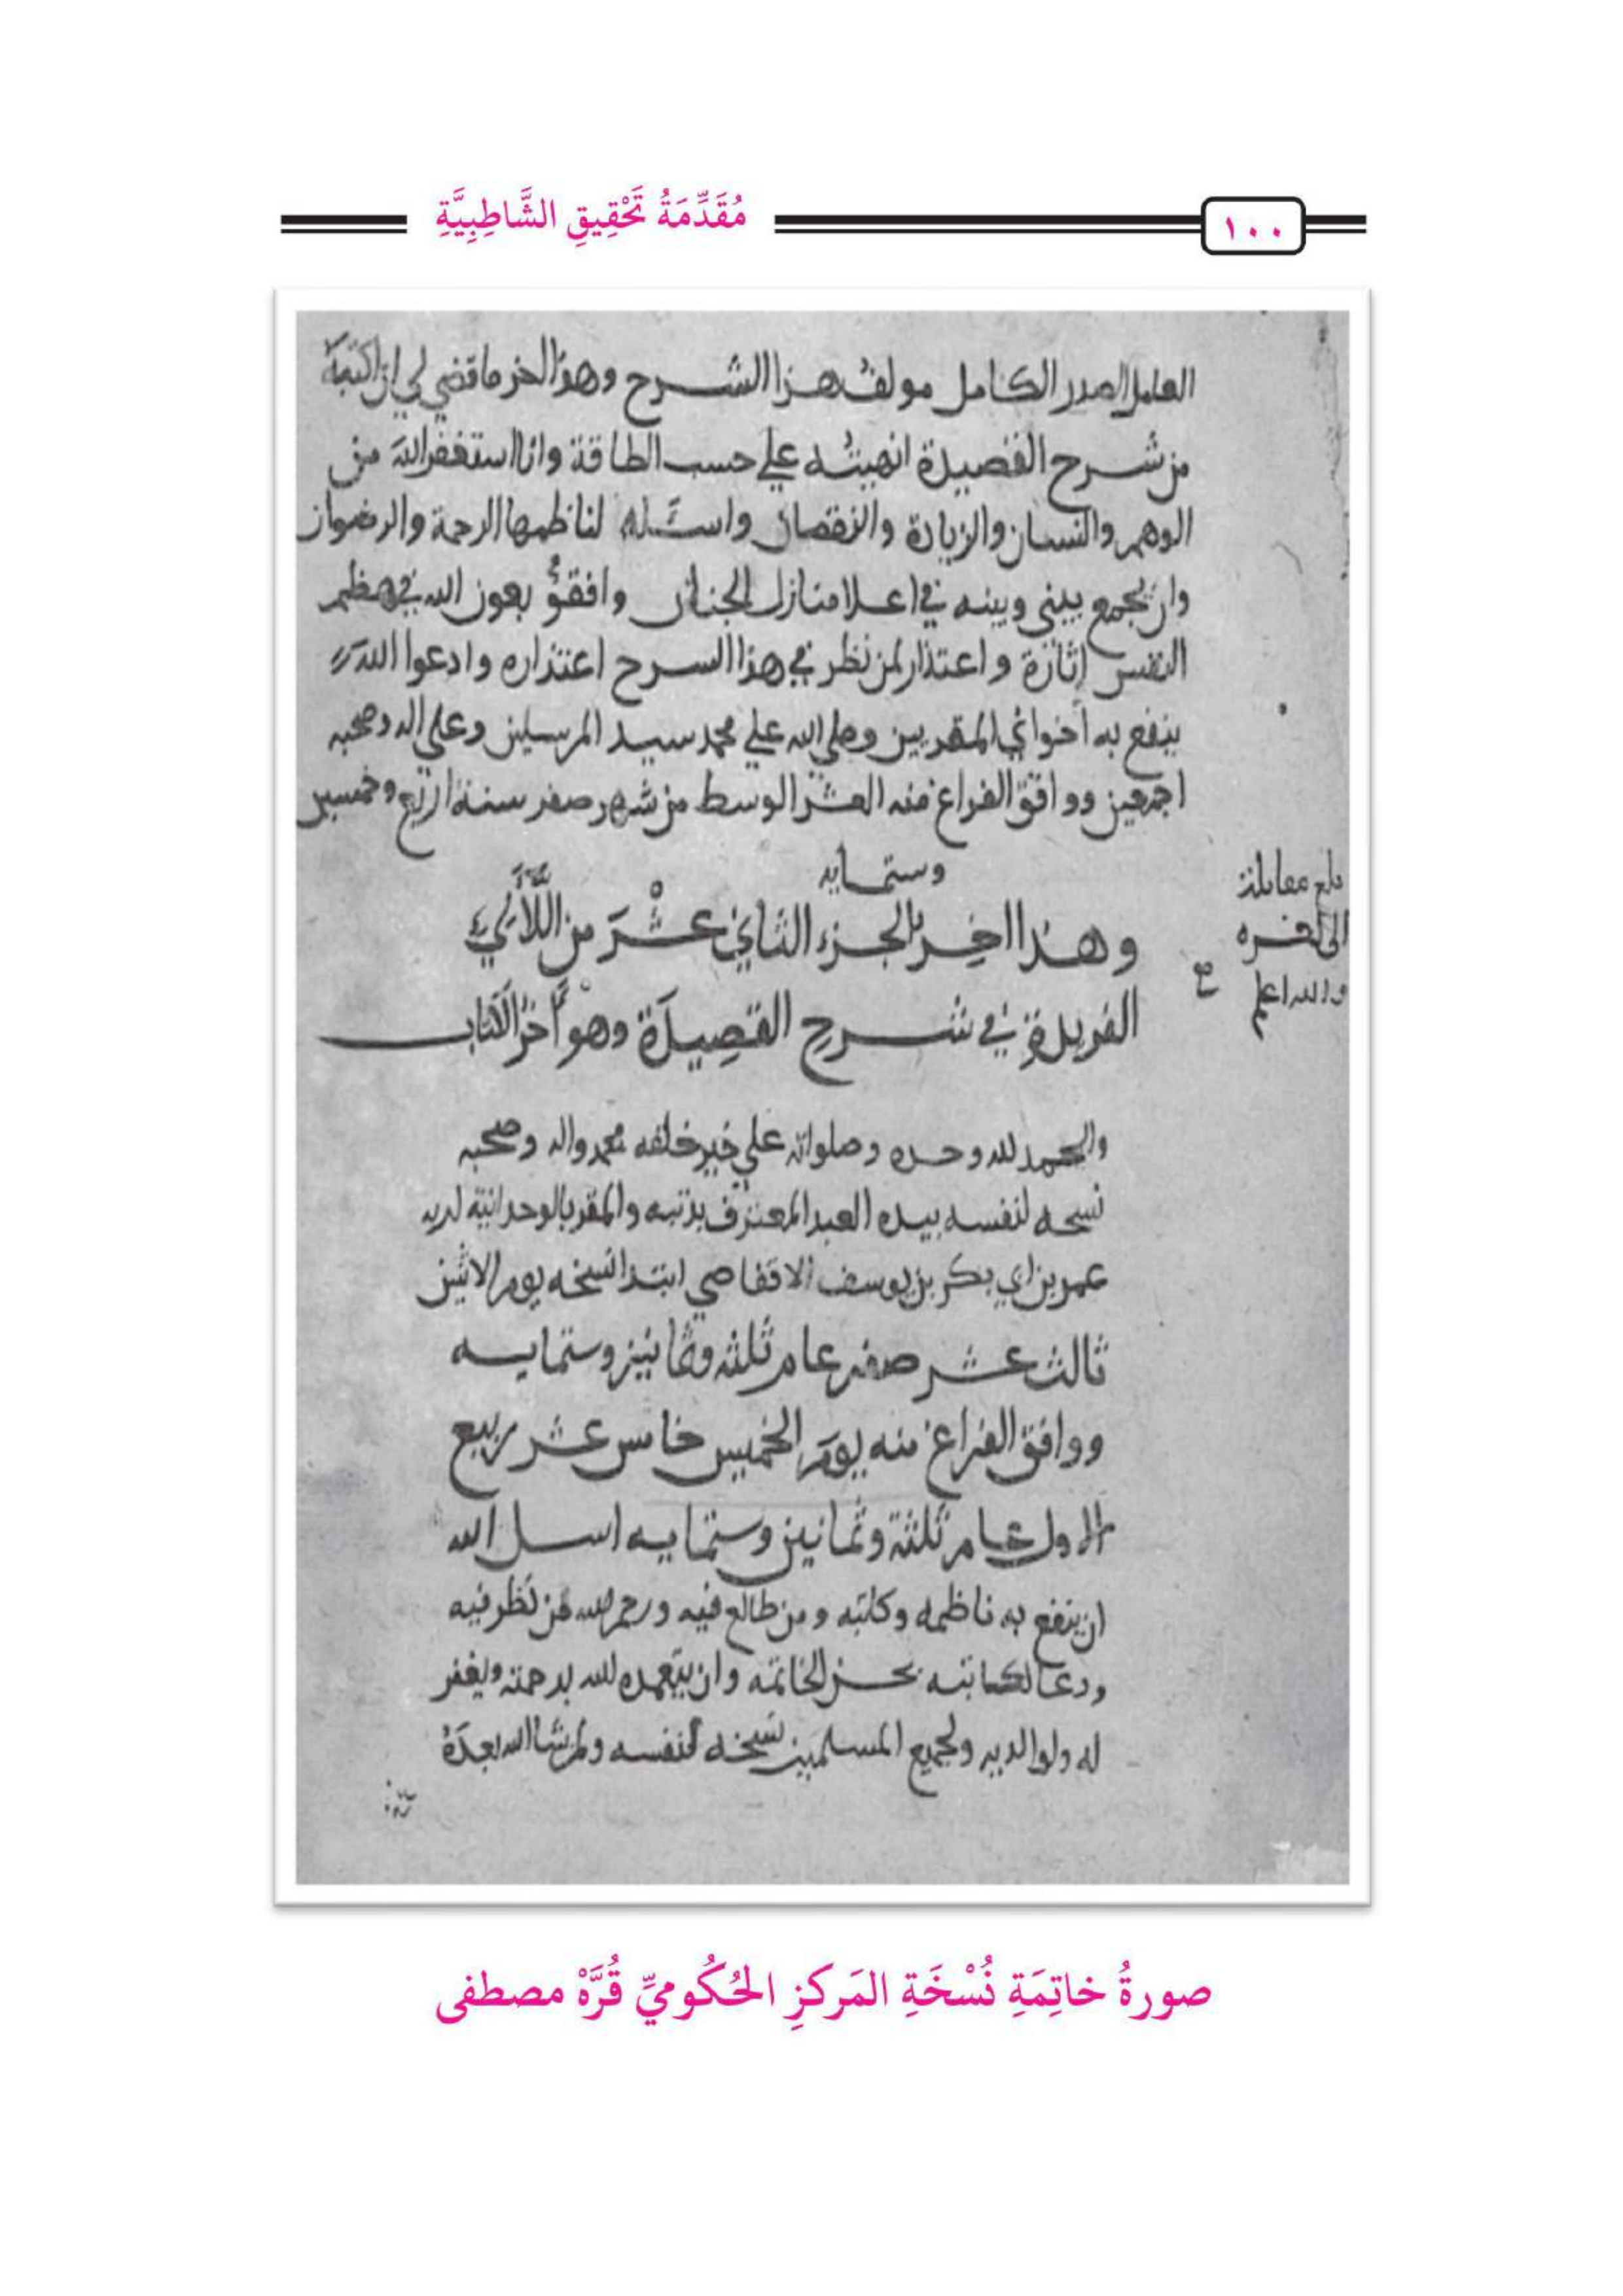 ١٠٠
مُقَدِّمَةُ تَحْقِيقِ الشَّاطِبِيَّةِ
العامل الصدر الكامل مولف هذا الشرح وهذا اخر ما قضي لي ان اكتبه
من شرح القصيدة انهيته علي حسب الطاقة وانا استغفر الله من
الوهم والنسيان والزيادة والنقصان واسئله لناظمها الرحمة والرضوان
وان يجمع بيني وبينه في اعلا منازل الجنان بعون الله في هضم
النفس واعتذار لمن نظر في هذا الشرح اعتذاره وادعوا الله
ينفع به اخواني المقريين وصلي الله علي محمد سيد المرسلين وعلي اله وصحبه
اجمعين ووافق الفراغ منه العشر الوسط من شهر صفر سنة اربع وخمسين
وستمايه
وهذا اخِر الجزء الثاني عشَر من اللَّآلِئ
الفريدةِ في شرحِ القصِيدَة وهو آخر الكتاب
بلغ مقابلة
الى اخره
والله اعلم
والحمد لله وحده وصلواته علي خير خلقه محمد واله وصحبه
نسخه لنفسه بيده العبد المعترف بذنبه والمقر بالوحدانية لربه
عمر بن ابي بكر بن يوسف الاقفاصي ابتدا نسخه يوم الاثنين
ثالث عشر صفر عام ثلثه وثمانين وستمايه
ووافق الفراغ منه يوم الخميس خامس عشر ربيع
الاول عام ثلثة وثمانين وستمايه اسل الله
ان ينفع به ناظمه وكاتبه ومن طالع فيه ورحم الله من نظر فيه
ودعا لكاتبه بحسن الخاتمه وان يتغمده الله برحمته ويغفر
له ولوالديه ولجميع المسلمين نسخه لنفسه ولمن شا الله بعدَهُ
صورةُ خاتِمَةِ نُسْخَةِ المَركزِ الحُكُوميِّ قُرَّهْ مصطفى